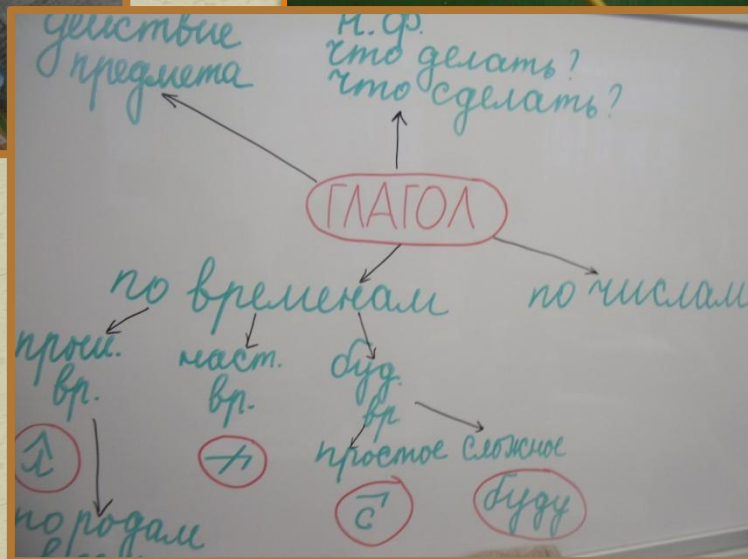 действие
предмета
н.ф.
что делать?
что сделать?
ГЛАГОЛ
по временам
по числам
прош.
вр.
наст.
вр.
буд.
вр
простое сложное
л
с
буду
по родам